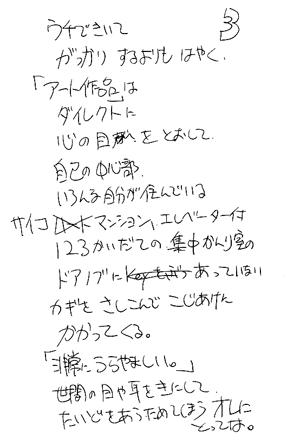 3
ウチできいて
がっかりするよりもはやく、
「アート作品」は
ダイレクトに
心の目をとおして
自己の中心部、
いろんな自分が住んでいる
サイコマンション、エレベーター付
123かいだての集中かんり室の
ドアノブにあっていない
カギをさしこんでこじあけに
かかってくる。
「非常にうらやましい。」
世間の目や耳をきにして
たいどをあらためてしまうオレに
とってはな。